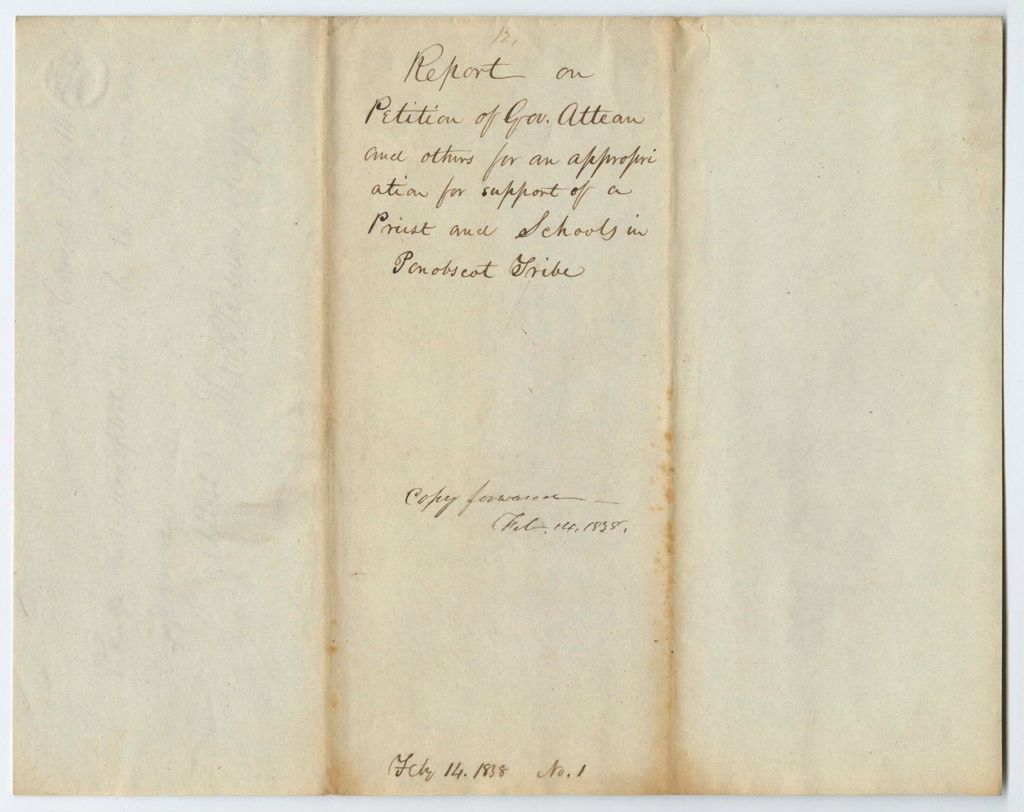 12.
Report on
Petition of Gov. Attean
and others for an appropri
ation for support of a
Priest and Schools in
Penobscot Tribe
Copy forwarded
Feb. 14. 1838.
Feby 14. 1838 No. 1